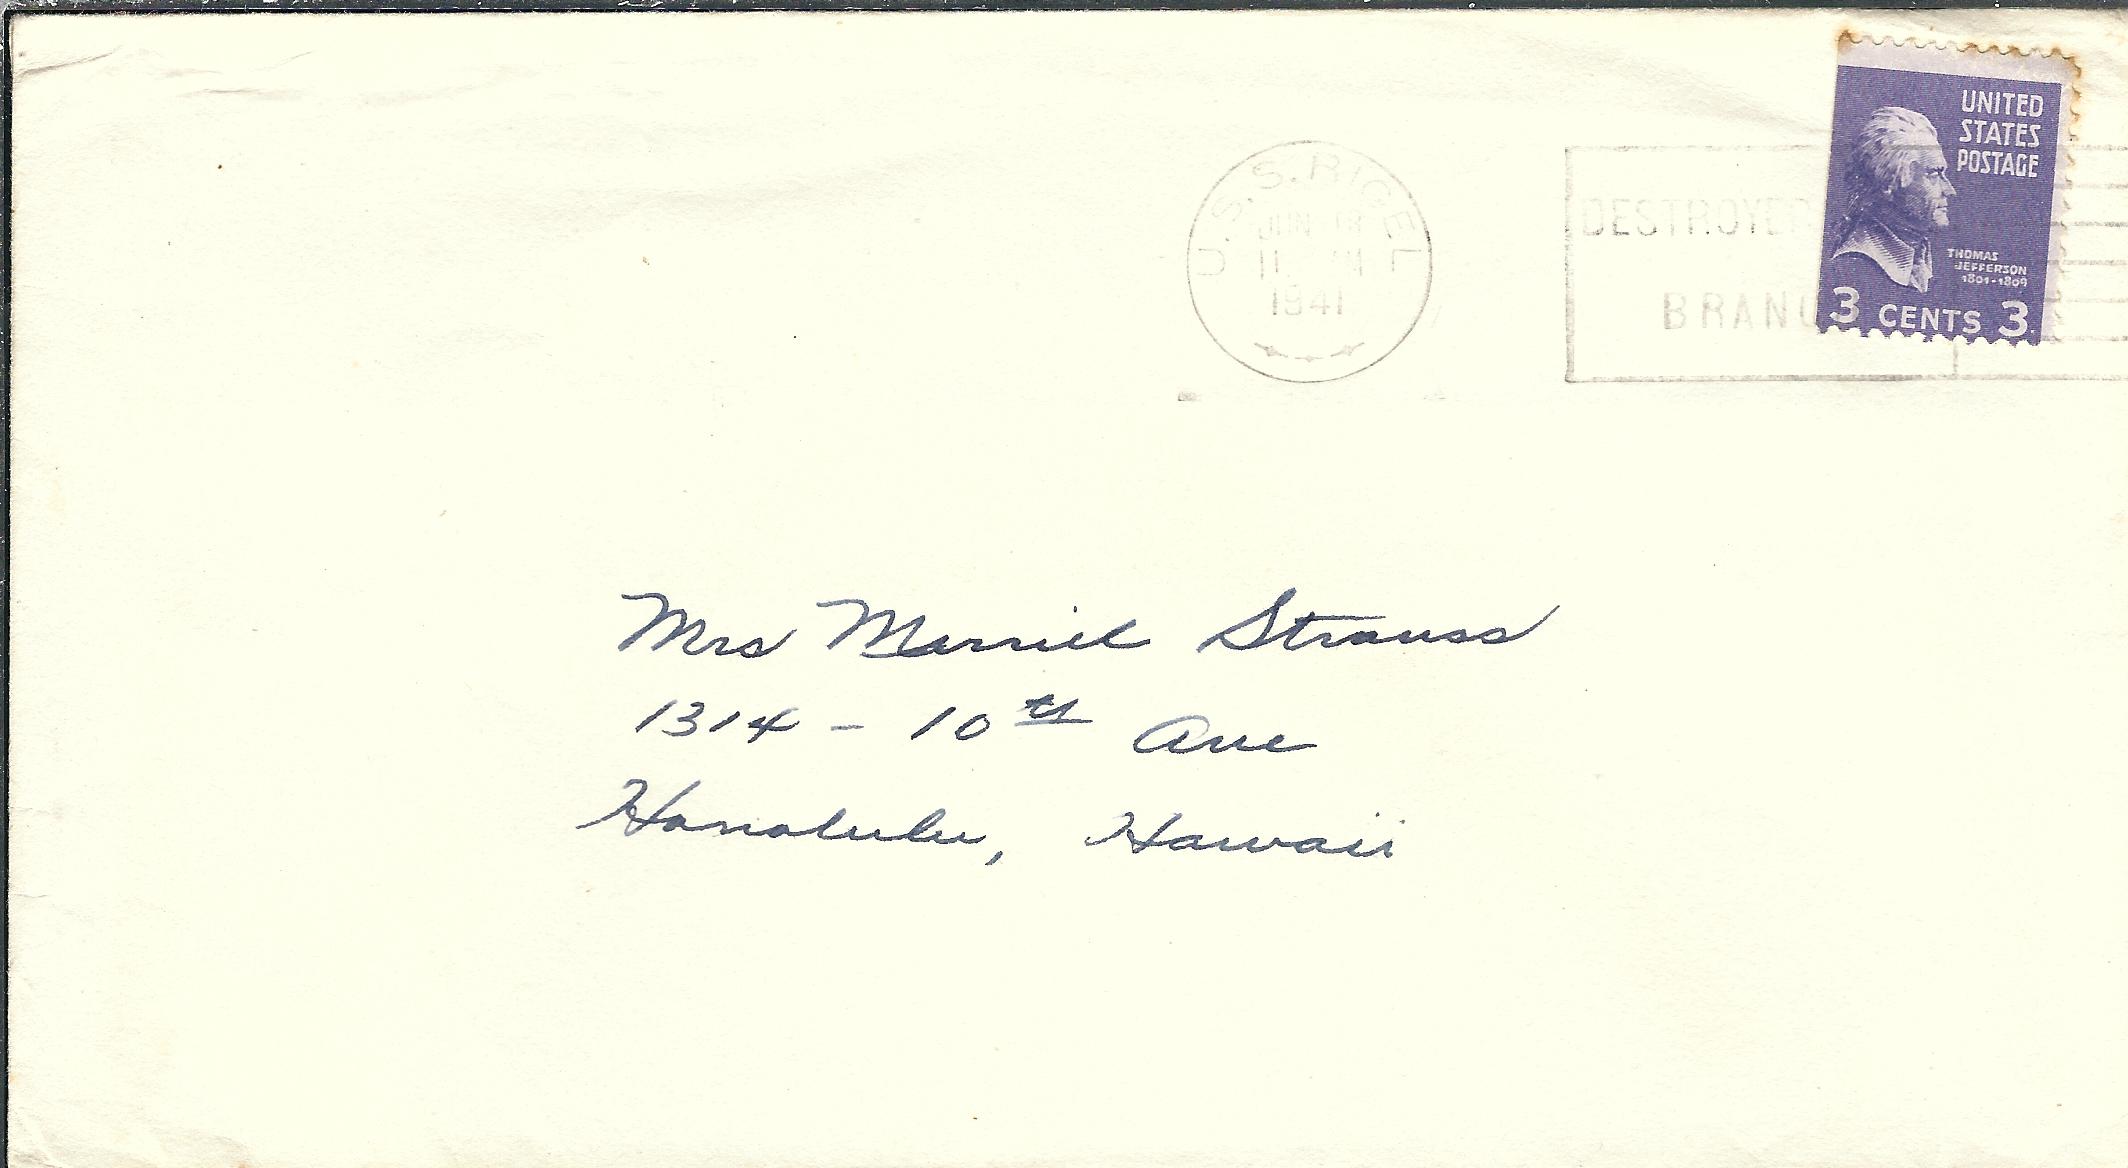 U.S.S. RIGEL
JUN 18
11 M
1941
DESTROYER
BRANC
UNITED
STATES
POSTAGE
THOMAS
JEFFERSON
1801-1809
3 CENTS 3
Mrs Merrill Strauss
1314 - 10th Ave
Honolulu, Hawaii